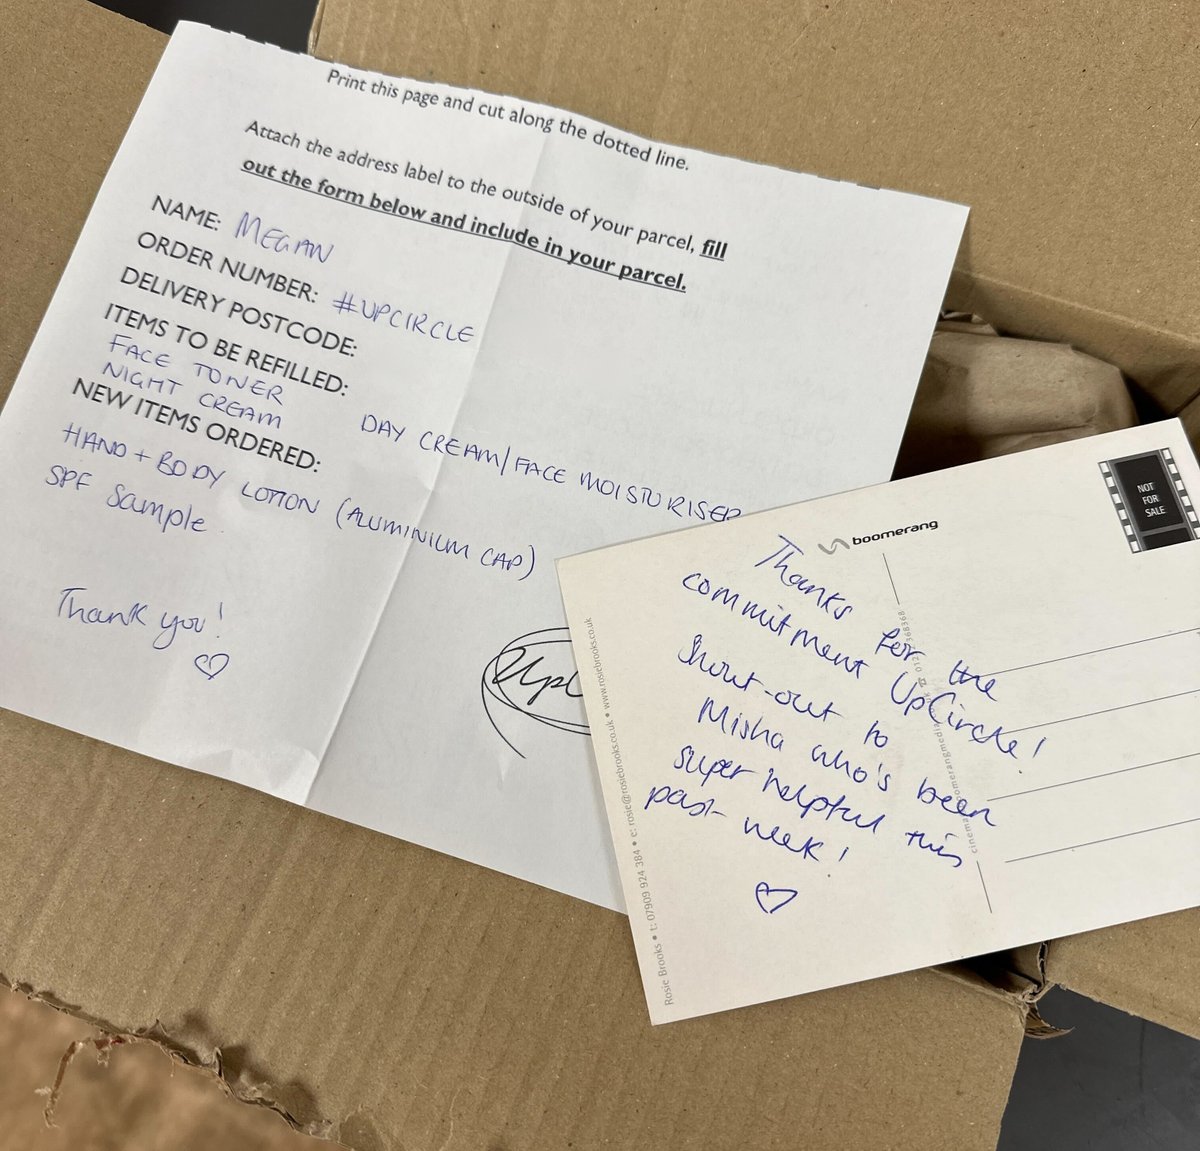 Print this page and cut along the dotted line.
Attach the address label to the outside of your parcel, fill
out the form below and include in your parcel.
NAME: MEGAN
ORDER NUMBER: #UPCIRCLE
DELIVERY POSTCODE:
ITEMS TO BE REFILLED:
FACE TONER
DAY CREAM/FACE MOISTURISER
NIGHT CREAM
NEW ITEMS ORDERED:
HAND + BODY LOTION (ALUMINIUM CAP)
SPF Sample
Thank you!
boomerang
NOT
FOR
SALE
Thanks for the
commitment UpCircle!
Shout-out to
Misha who's been
super helpful this
past week!
Rosie Brooks • t: 07909 924 384 • e: rosie@rosiebrooks.co.uk • www.rosiebrooks.co.uk